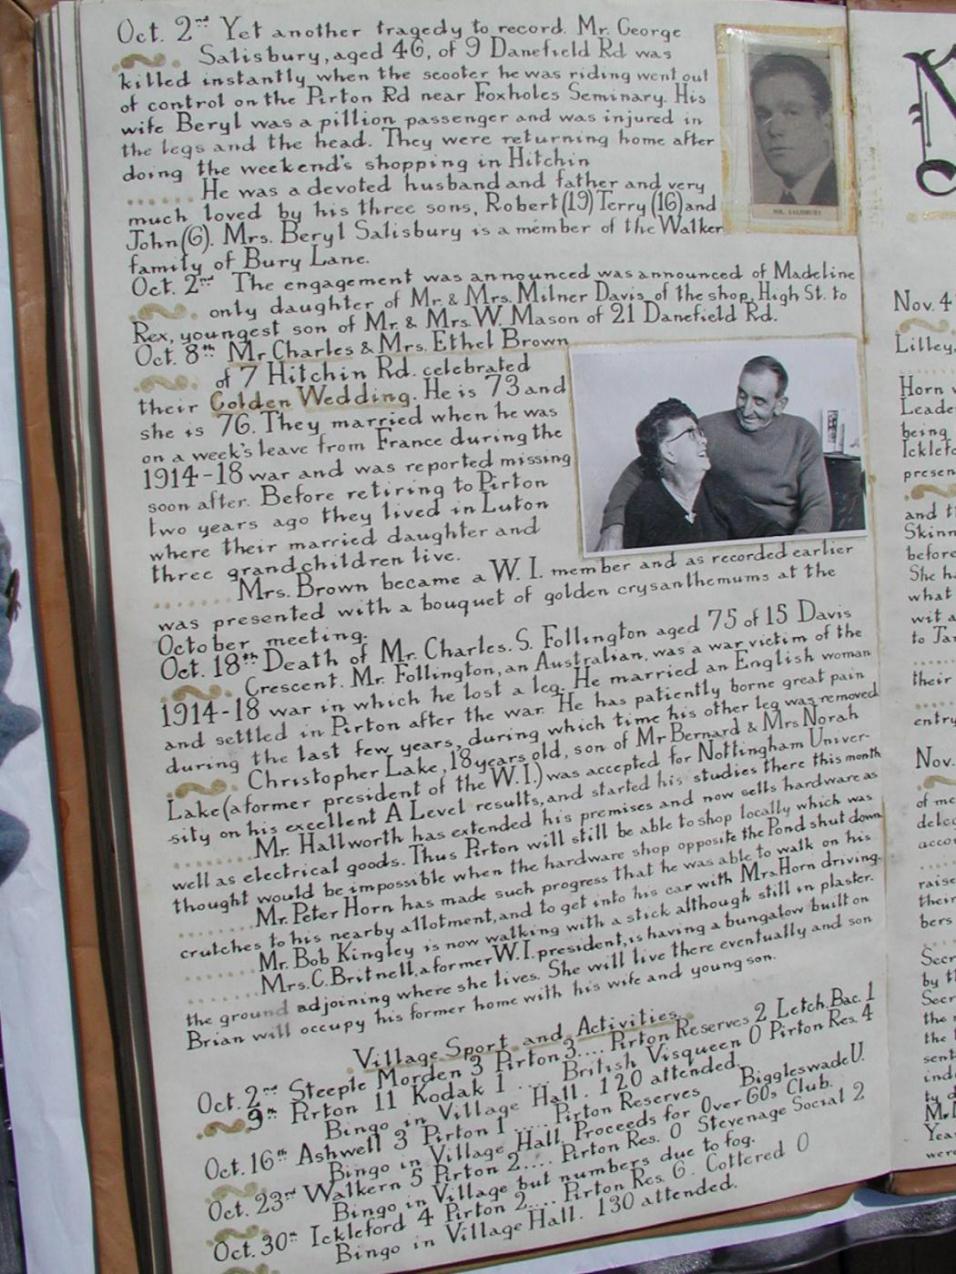 Oct. 2nd Yet another tragedy to record. Mr. George
Salisbury, aged 46, of 9 Danefield Rd was
killed instantly when the scooter he was riding went out
of control on the Pirton Rd near Foxholes Seminary. His
wife Beryl was a pillion passenger and was injured in
the legs and the head. They were returning home after
doing the weekend's shopping in Hitchin
....... He was a devoted husband and father and very
much loved by his three sons, Robert (19) Terry (16) and
John (6). Mrs. Beryl Salisbury is a member of the Walker
family of Bury Lane.
MR. SALISBURY
Oct. 2nd The engagement was announced was announced of Madeline
only daughter of Mr. & Mrs. Milner Davis, of the shop, High St. to
Rex, youngest son of Mr. & Mrs. W. Mason of 21 Danefield Rd.
Oct. 8th Mr Charles & Mrs. Ethel Brown
of 7 Hitchin Rd. celebrated
their Golden Wedding. He is 73 and
she is 76. They married when he was
on a week's leave from France during the
1914-18 war and was reported missing
soon after. Before retiring to Pirton
two years ago they lived in Luton
where their married daughter and
three grandchildren live.
....... Mrs. Brown became a W.I. member and as recorded earlier
was presented with a bouquet of golden crysanthemums at the
October meeting.
Oct. 18th Death of Mr. Charles. S. Follington aged 75 of 15 Davis
Crescent. Mr. Follington, an Australian, was a war victim of the
1914-18 war in which he lost a leg. He married an English woman
and settled in Pirton after the war. He has patiently borne great pain
during the last few years, during which time his other leg was removed
Christopher Lake, 18 years old, son of Mr Bernard & Mrs Norah
Lake (a former president of the W.I.) was accepted for Nottingham Univer-
sity on his excellent A Level results, and started his studies there this month
....... Mr. Hallworth has extended his premises and now sells hardware as
well as electrical goods. Thus Pirton will still be able to shop locally which was
thought would be impossible when the hardware shop opposite the Pond shut down
Mr. Peter Horn has made such progress that he was able to walk on his
crutches to his nearby allotment, and to get into his car with Mrs. Horn driving.
....... Mr. Bob Kingley is now walking with a stick although still in plaster.
....... Mrs. C. Britnell, a former W.I. president, is having a bungalow built on
the ground adjoining where she lives. She will live there eventually and son
Brian will occupy his former home with his wife and young son.
Village Sport and Activities.
Oct. 2nd Steeple Morden 3 Pirton 3.... Pirton Reserves 2 Letch. Bac. 1
9th Pirton 11 Kodak 1 .... British Visqueen 0 Pirton Res. 4
Bingo in Village Hall. 120 attended.
Oct. 16th Ashwell 3 Pirton 1 .... Pirton Reserves Biggleswade U.
Bingo in Village Hall. Proceeds for Over 60s Club.
Oct. 23rd Walkern 5 Pirton 2.... Pirton Res. 0 Stevenage Social 2
Bingo in Village but numbers due to fog.
Oct. 30th Ickleford 4 Pirton 2.... Pirton Res. 6. Cottered 0
Bingo in Village Hall. 130 attended.
N
Nov. 4
Lilley,
Horn w
Leade
being
Icklefo
presen
and t
Skinn
before
She ha
what
wit a
to Jan
their
entry
Nov.
of me
deleg
accor
raise
their
bers
Secr
by th
Secr
the
the
sent
ind
ty d
M. M
Yea
were